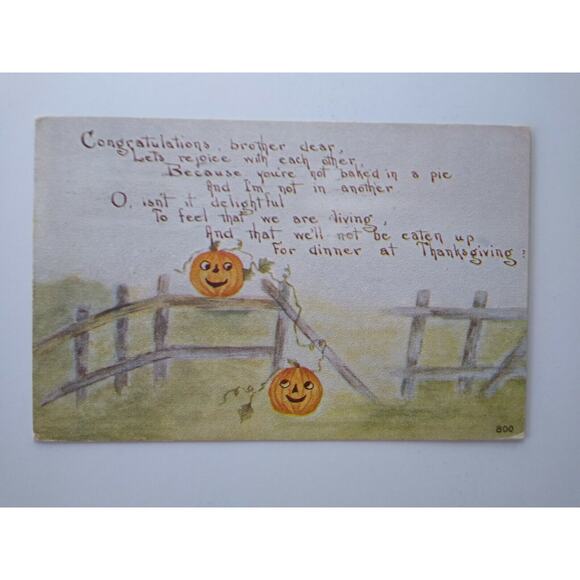 Congratulations, brother dear,
Lets rejoice with each other,
Because, you're not baked in a pie
And I'm not in another
O, isn't it delightful
To feel that we are living,
And that we'll not be eaten up
For dinner at Thanksgiving?
800